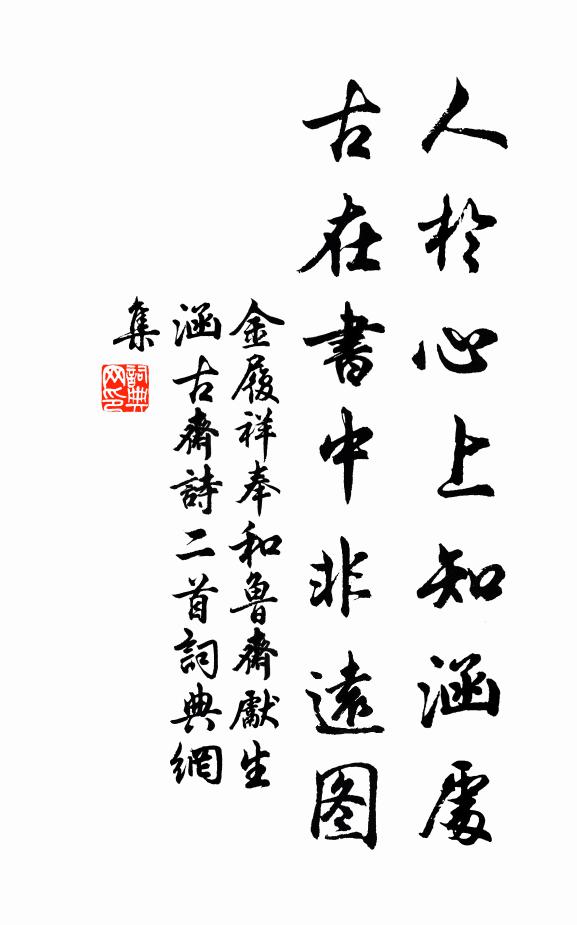 人於心上知涵處
古在書中非遠图
金履祥奉和魯齋獻生
涵古齋詩二首詞典網
集
詞典網印